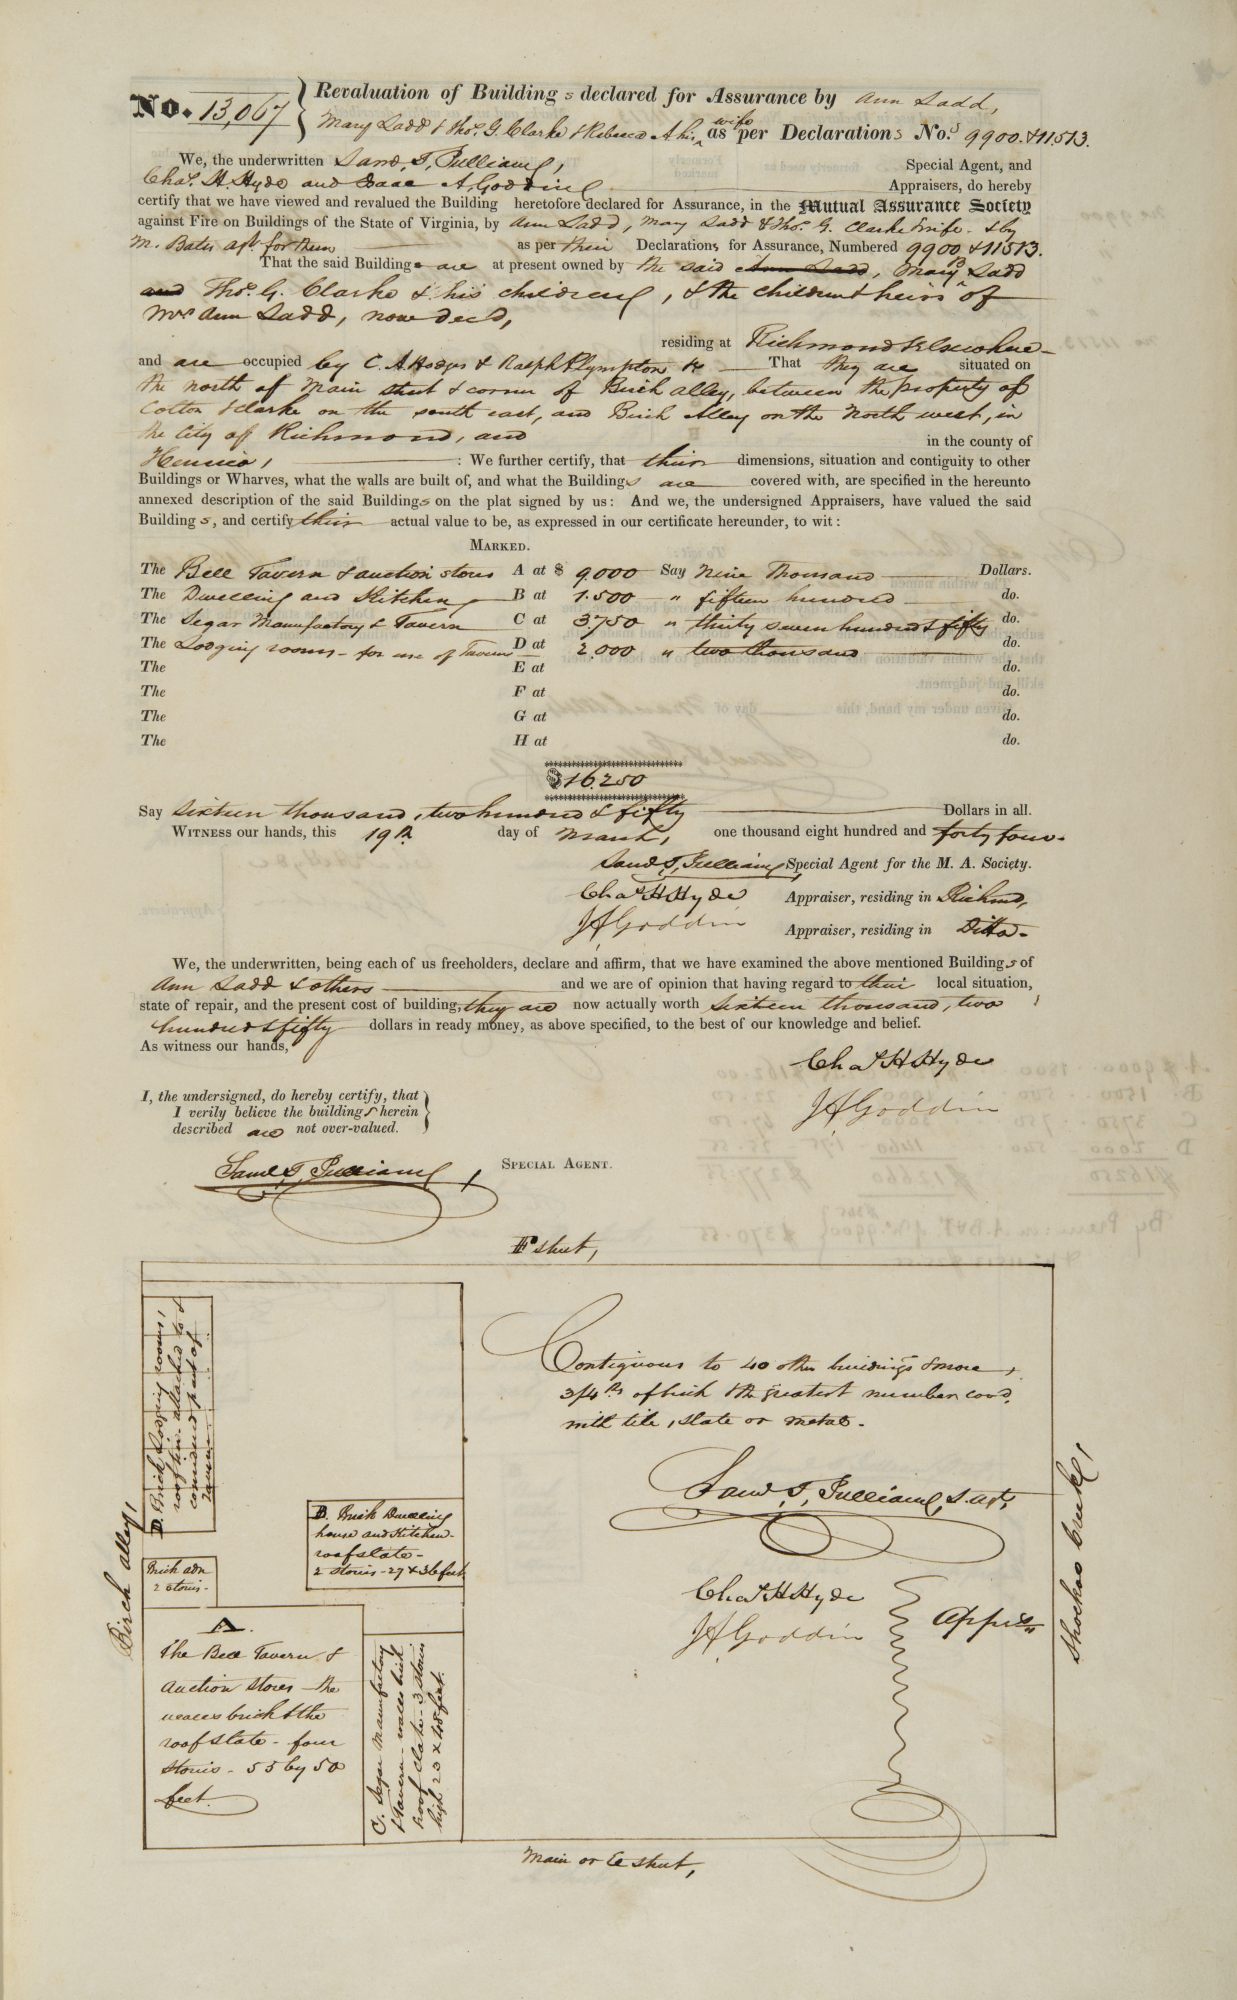 No. 13,067 } Revaluation of Buildings declared for Assurance by Ann Ladd,
Mary Ladd & Thos. G. Clarke & Rebecca A his wife as per Declarations Nos. 9900. & 11513.
We, the underwritten Saml. T. Pulliam, Special Agent, and
Chas. H. Hyde and Isaac A. Goddin Appraisers, do hereby
certify that we have viewed and revalued the Building heretofore declared for Assurance, in the Mutual Assurance Society
against Fire on Buildings of the State of Virginia, by Ann Ladd, Mary Ladd & Thos. G. Clarke & wife. & by
M. Bates agt. for them as per their Declarations for Assurance, Numbered 9900 & 11513.
That the said Buildings are at present owned by the said Ann Ladd, Mary B Ladd
and Thos. G. Clarke & his children, & the children & heirs of
Mrs Ann Ladd, now decd,
residing at Richmond & Elsewhere
and are occupied by C. A. Hodges & Ralph Plympton &c That they are situated on
the north of Main street & corner of Birch alley, between the property of
Cotton & Clarke on the south east, and Birch Alley on the North west, in
the City of Richmond, and in the county of
Henrico, : We further certify, that their dimensions, situation and contiguity to other
Buildings or Wharves, what the walls are built of, and what the Buildings are covered with, are specified in the hereunto
annexed description of the said Buildings on the plat signed by us: And we, the undersigned Appraisers, have valued the said
Buildings, and certify their actual value to be, as expressed in our certificate hereunder, to wit:
MARKED.
The Bell Tavern & auction stores A at $ 9.000 Say Nine Thousand Dollars.
The Dwelling and Kitchen B at 1.500 " fifteen hundred do.
The Segar Manufactory & Tavern C at 3750 " thirty seven hundred & fifty do.
The Lodging rooms - for use of Tavern D at 2.000 " two thousand do.
The E at do.
The F at do.
The G at do.
The H at do.
$16.250
Say sixteen thousand, two hundred & fifty Dollars in all.
WITNESS our hands, this 19th day of March, one thousand eight hundred and forty four.
Saml T. Pulliam, Special Agent for the M. A. Society.
Chas H Hyde Appraiser, residing in Richmd,
J A Goddin Appraiser, residing in Ditto.
We, the underwritten, being each of us freeholders, declare and affirm, that we have examined the above mentioned Buildings of
Ann Ladd & others and we are of opinion that having regard to their local situation,
state of repair, and the present cost of building, they are now actually worth sixteen thousand, two
hundred & fifty dollars in ready money, as above specified, to the best of our knowledge and belief.
As witness our hands,
Chas H Hyde
J A Goddin
I, the undersigned, do hereby certify, that
I verily believe the buildings herein
described are not over-valued. }
Saml T. Pulliam, SPECIAL AGENT.
F street,
D. Brick Lodging rooms,
roof tin - attached to &
considered part of
Tavern.
Birch alley,
Brick adn
2 stories.
B. Brick Dwelling
house and Kitchen -
roof slate -
2 stories - 27 & 36 feet
A.
The Bell Tavern &
Auction Stores - the
walls brick & the
roof slate - four
stories - 55 by 50
feet.
C. Segar Manufactory
& Tavern - walls brick
roof slate - 3 stories
high 20 x 48 feet.
Contiguous to 40 other buildings & more,
3/4ths of brick & the greatest number covd.
with tile, slate or metal.
Saml. T. Pulliam, S. agt,
Chas H Hyde
J A Goddin
Apprs
Shockoe Creek,
Main or E street,